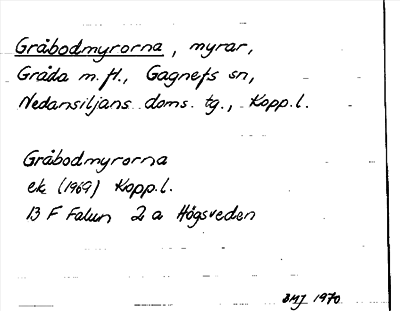 Gråbodmyrorna, myrar,
Gråda m.fl., Gagnefs sn,
Nedansiljans doms. tg., Kopp.l.
Gråbodmyrorna
ek (1969) Kopp.l.
13 F Falun 2 a Högsveden
BMJ 1970